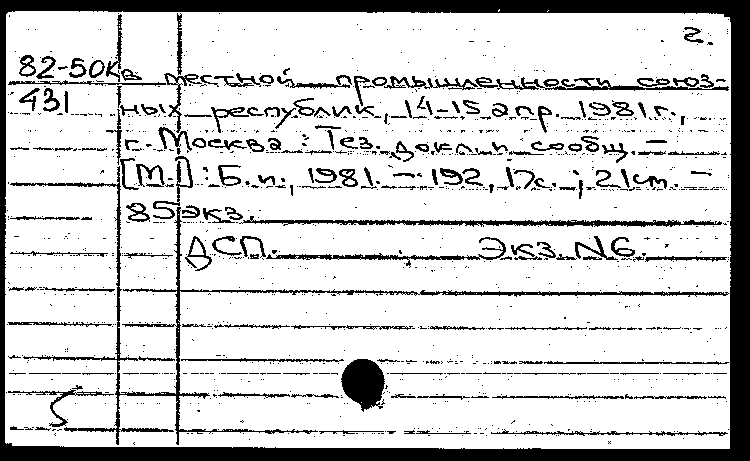 2.
82-50К в местной промышленности союз-
431 ных республик, 14-15 апр. 1981г.,
г. Москва : Тез. докл. и сообщ. —
[М.] : Б. и., 1981. — 192, 17с. ; 21см. —
85экз.
ДСП. Экз. N6.
5